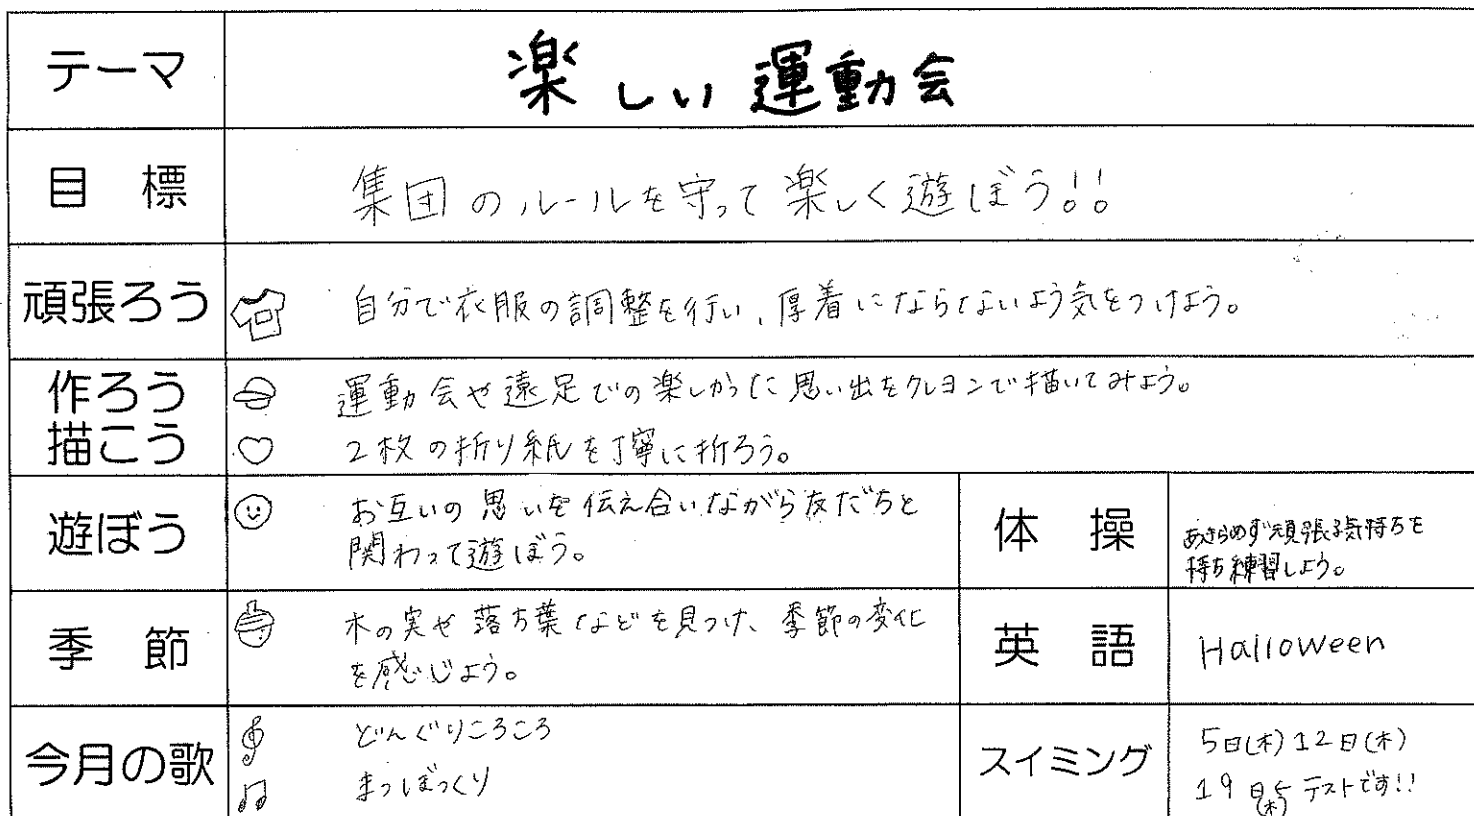 テーマ
楽しい運動会
目 標
集団のルールを守って楽しく遊ぼう!!
頑張ろう
自分で衣服の調整を行い、厚着にならないよう気をつけよう。
作ろう
描こう
運動会や遠足での楽しかった思い出をクレヨンで描いてみよう。
2枚の折り紙を丁寧に折ろう。
遊ぼう
お互いの思いを伝え合いながら友だちと
関わって遊ぼう。
体 操
あきらめず頑張る気持ちを
持ち練習しよう。
季 節
木の実や落ち葉などを見つけ、季節の変化
を感じよう。
英 語
Halloween
今月の歌
どんぐりころころ
まつぼっくり
スイミング
5日(木)12日(木)
19日(木) テストです!!